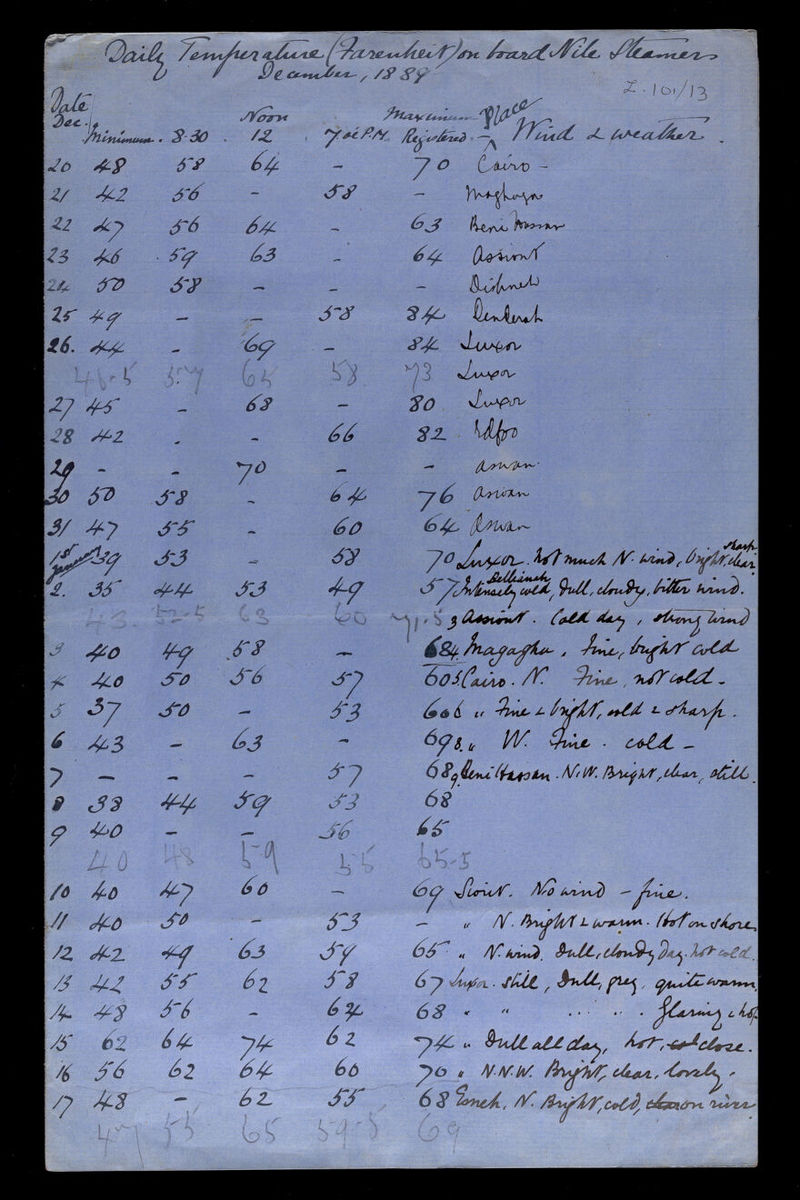 Daily Temperature (Farenheit) on board Nile Steamers
December, 1889
Z.101/13
Date
Dec. Minimum. 8.30 Noon 12 7 P.M. Maximum Registered - Place Wind & weather.
20 48 58 64 - 70 Cairo -
21 42 56 - 58 - Maghaga
22 47 56 64 - 63 Beni Hassan
23 46 59 63 - 64 Assiout
24 50 58 - - - Dishneh
25 49 - - 58 84 Denderah
26. 44 - 69 - 84 Luxor
46.5 57 65 58 73 Luxor
27 45 - 68 - 80 Luxor
28 42 . - 66 82 Edfoo
29 - - 70 - - Aswan
30 50 58 - 64 76 Aswan
31 47 55 - 60 64 Aswan
1st January 39 53 - 58 70 Luxor. Not much N. wind, bright, sharp clear
2. 35 44 53 49 57 Intensely cold, dull, cloudy, bitter wind.
43. 52.5 63 60 71.5 3 Assiout. Cold day, strong wind
3 40 49 58 - 68 4. Magagha, Fine, bright cold
4 40 50 56 57 60 5. Cairo. N. Fine, not cold -
5 37 50 - 53 66 6 " Fine & bright, cold & sharp.
6 43 - 63 - 69 8. " W. Fine. cold -
7 - - - 57 68 9. Beni Hassan. N.W. Bright, clear, still.
8 38 44 59 53 68
9 40 - - 56 65
40 48 59 55 65.5
10 40 47 60 - 69 Siout. No wind - fine.
11 40 50 - 53 - " N. Bright & warm. Hot on shore
12 42 49 63 59 65 " N. wind. Dull, cloudy day. not cold.
13 42 55 62 58 67 Luxor. still, Dull, grey, quite warm.
14 48 56 - 64 68 " " Glaring & hot
15 62 64 74 62 74 " Dull all day, hot, close.
16 56 62 64 60 70 " N.N.W. Bright, clear, lovely.
17 48 - 62 55 68 Esneh. N. Bright, cold, on river
47 55 65 59.5 69